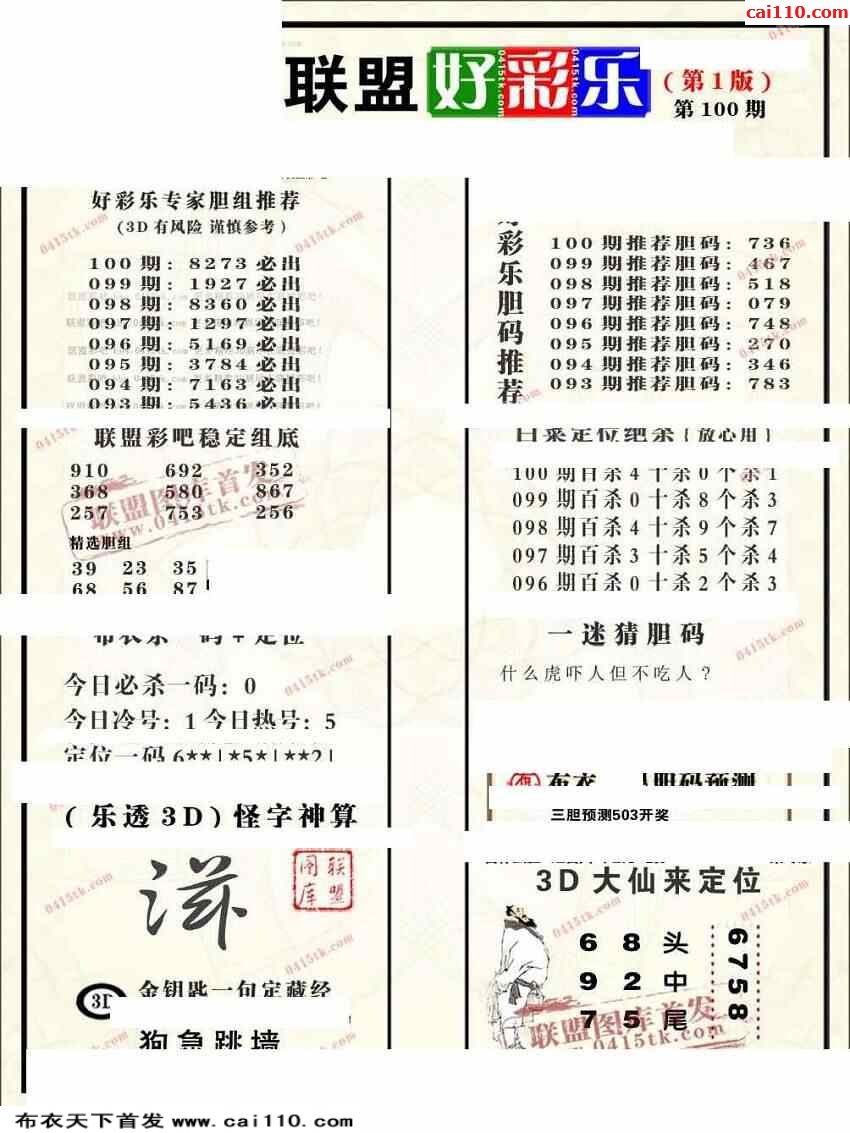 cai110.com
联盟好彩乐
0415tk.com 0415tk.com 0415tk.com
(第1版)
第100期
好彩乐专家胆组推荐
(3D有风险 谨慎参考)
100期:8273必出
099期:1927必出
098期:8360必出
097期:1297必出
096期:5169必出
095期:3784必出
094期:7163必出
093期:5436必出
联盟彩吧稳定组底
910 692 352
368 580 867
257 753 256
精选胆组
39 23 35
68 56 87
今日必杀一码:0
今日冷号:1 今日热号:5
定位一码 6**|*5*|**2|
(乐透3D)怪字神算
联盟图库
3D
金钥匙一句定藏经
狗急跳墙
好彩乐胆码推荐
100期推荐胆码:736
099期推荐胆码:467
098期推荐胆码:518
097期推荐胆码:079
096期推荐胆码:748
095期推荐胆码:270
094期推荐胆码:346
093期推荐胆码:783
白菜定位绝杀(放心用)
100期百杀4十杀0个杀1
099期百杀0十杀8个杀3
098期百杀4十杀9个杀7
097期百杀3十杀5个杀4
096期百杀0十杀2个杀3
一迷猜胆码
什么虎吓人但不吃人?
布衣 胆码预测
三胆预测503开奖
3D大仙来定位
6 8 头
9 2 中
7 5 尾
6758
联盟图库首发
www.0415tk.com
布衣天下首发 www.cai110.com